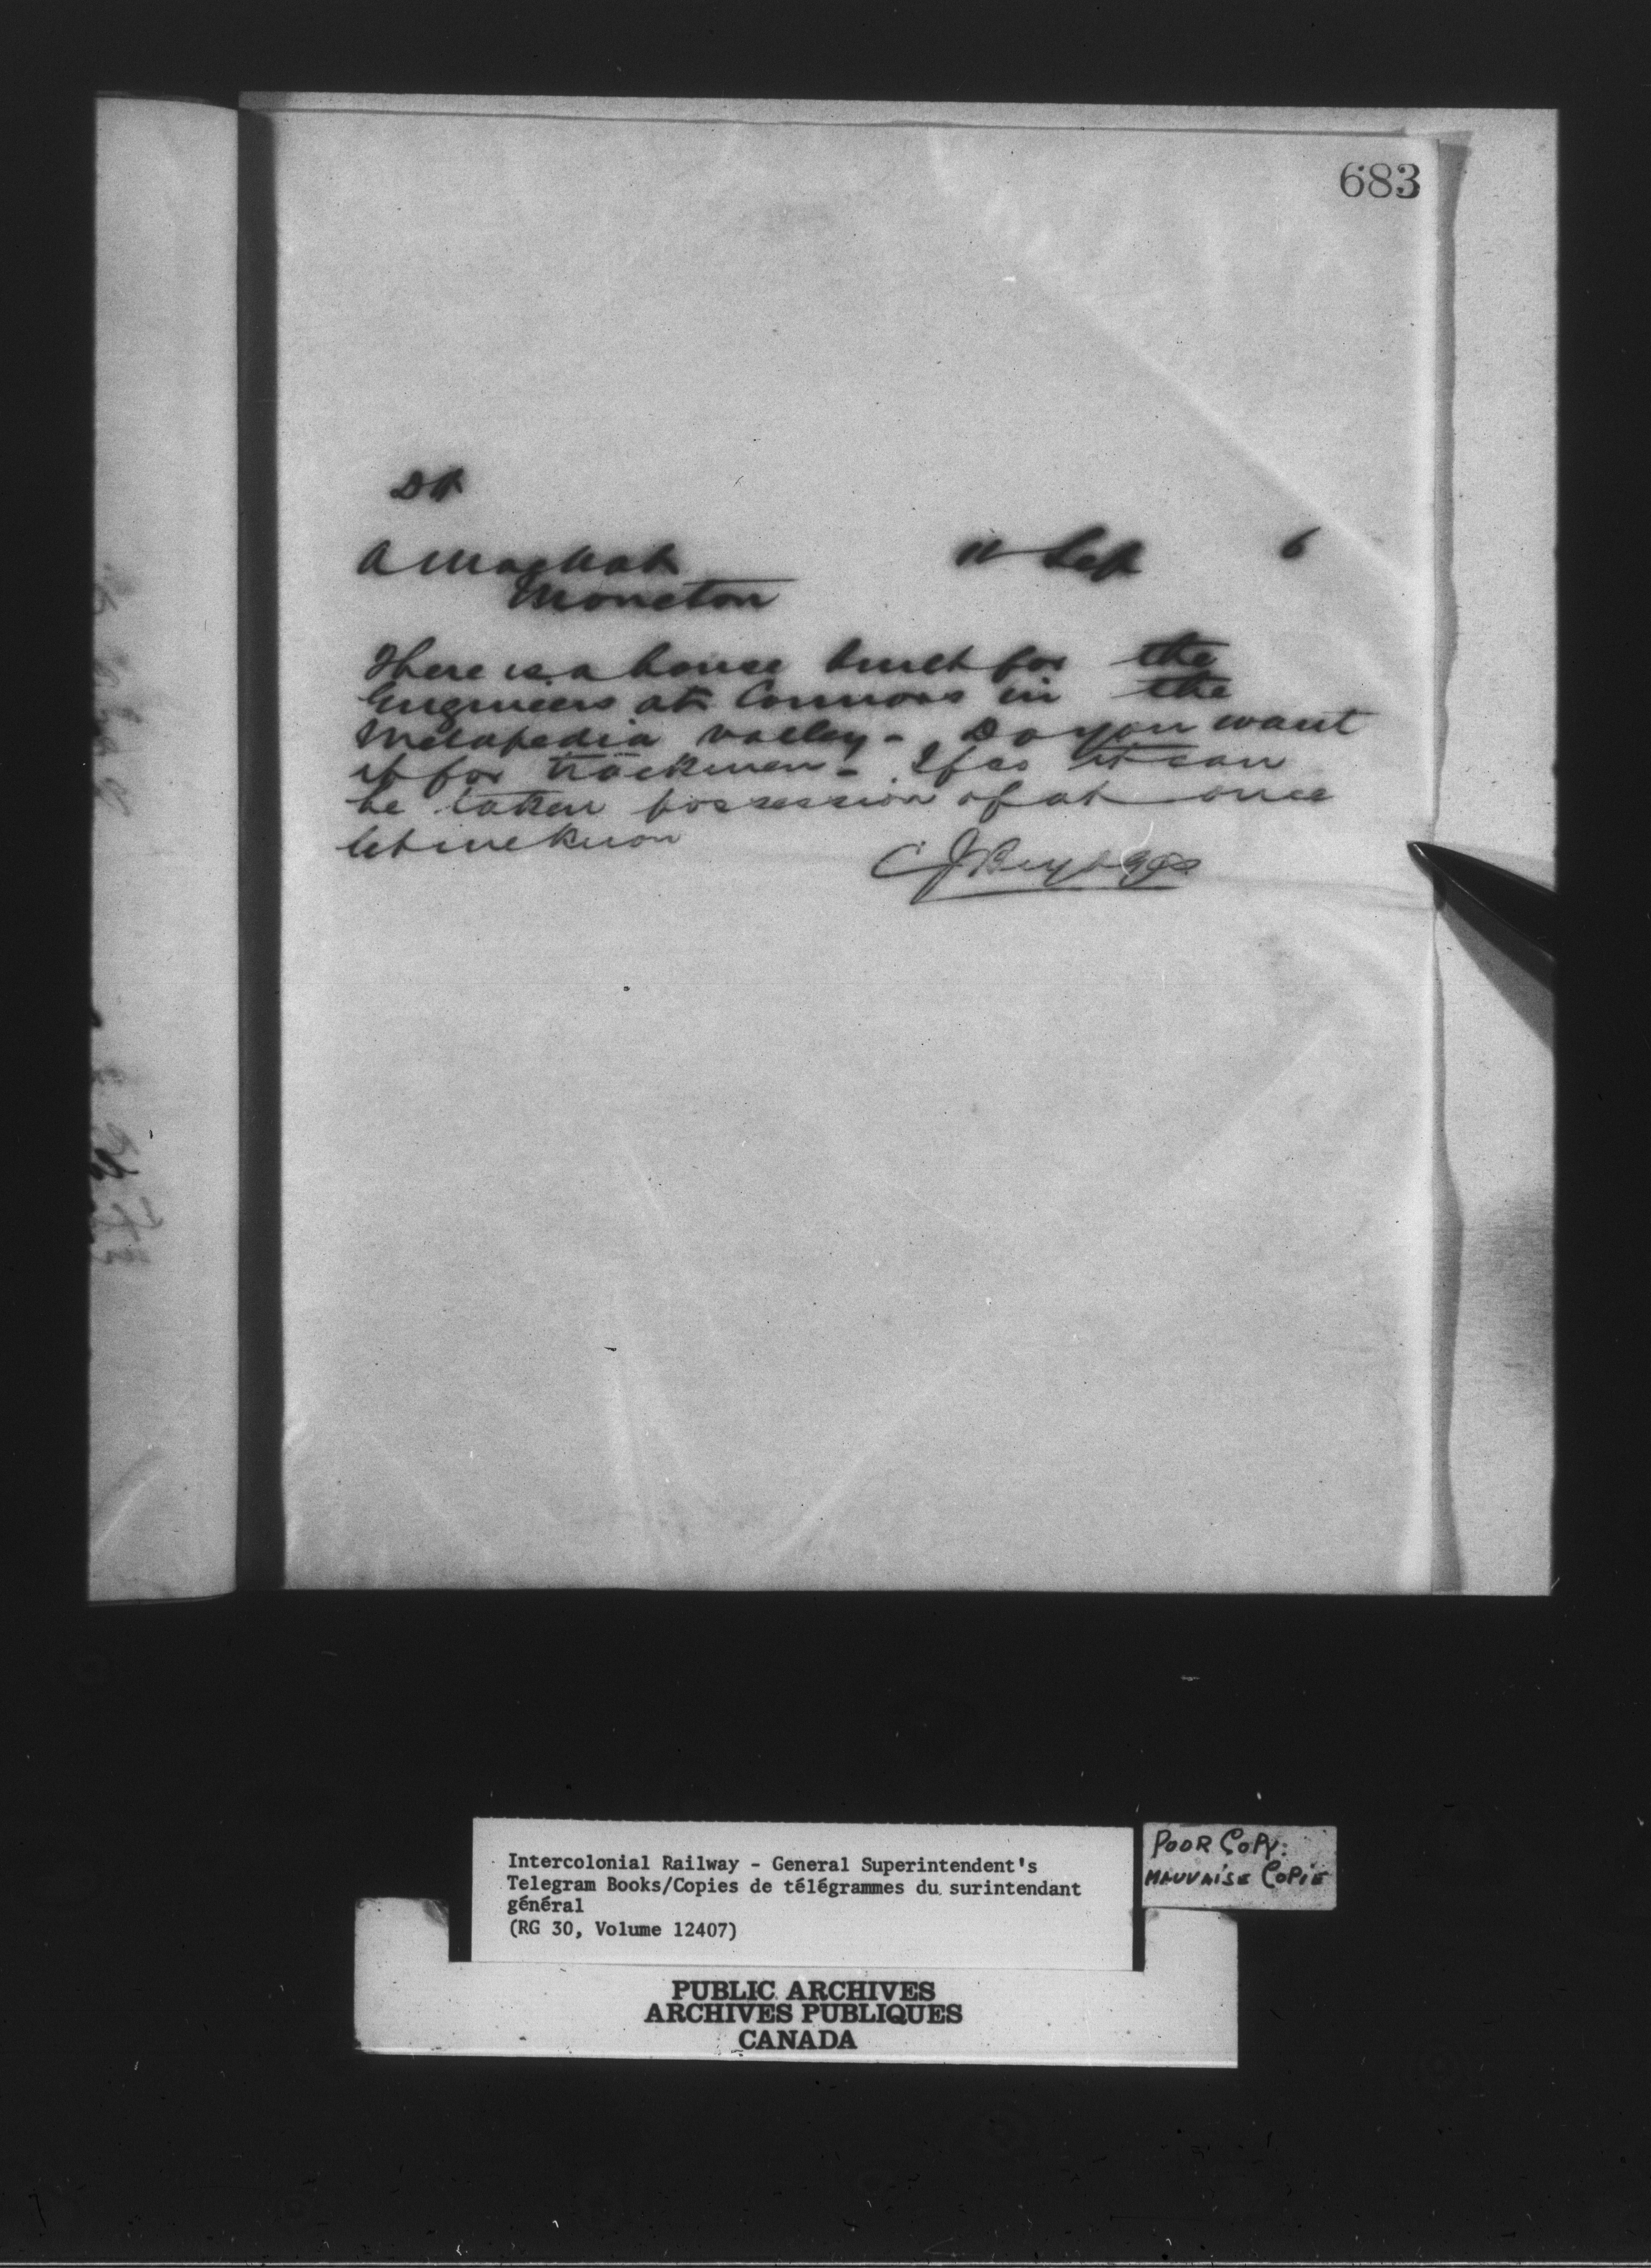 683
DH
A MacNab 11 Sep 6
Moncton
There is a house built for the
Engineers at Connors in the
Metapedia valley - Do you want
it for trackmen - If so it can
be taken possession of at once
let me know
C J Brydges
Intercolonial Railway - General Superintendent's
Telegram Books/Copies de télégrammes du surintendant
général
(RG 30, Volume 12407)
POOR COPY:
MAUVAISE COPIE
PUBLIC ARCHIVES
ARCHIVES PUBLIQUES
CANADA